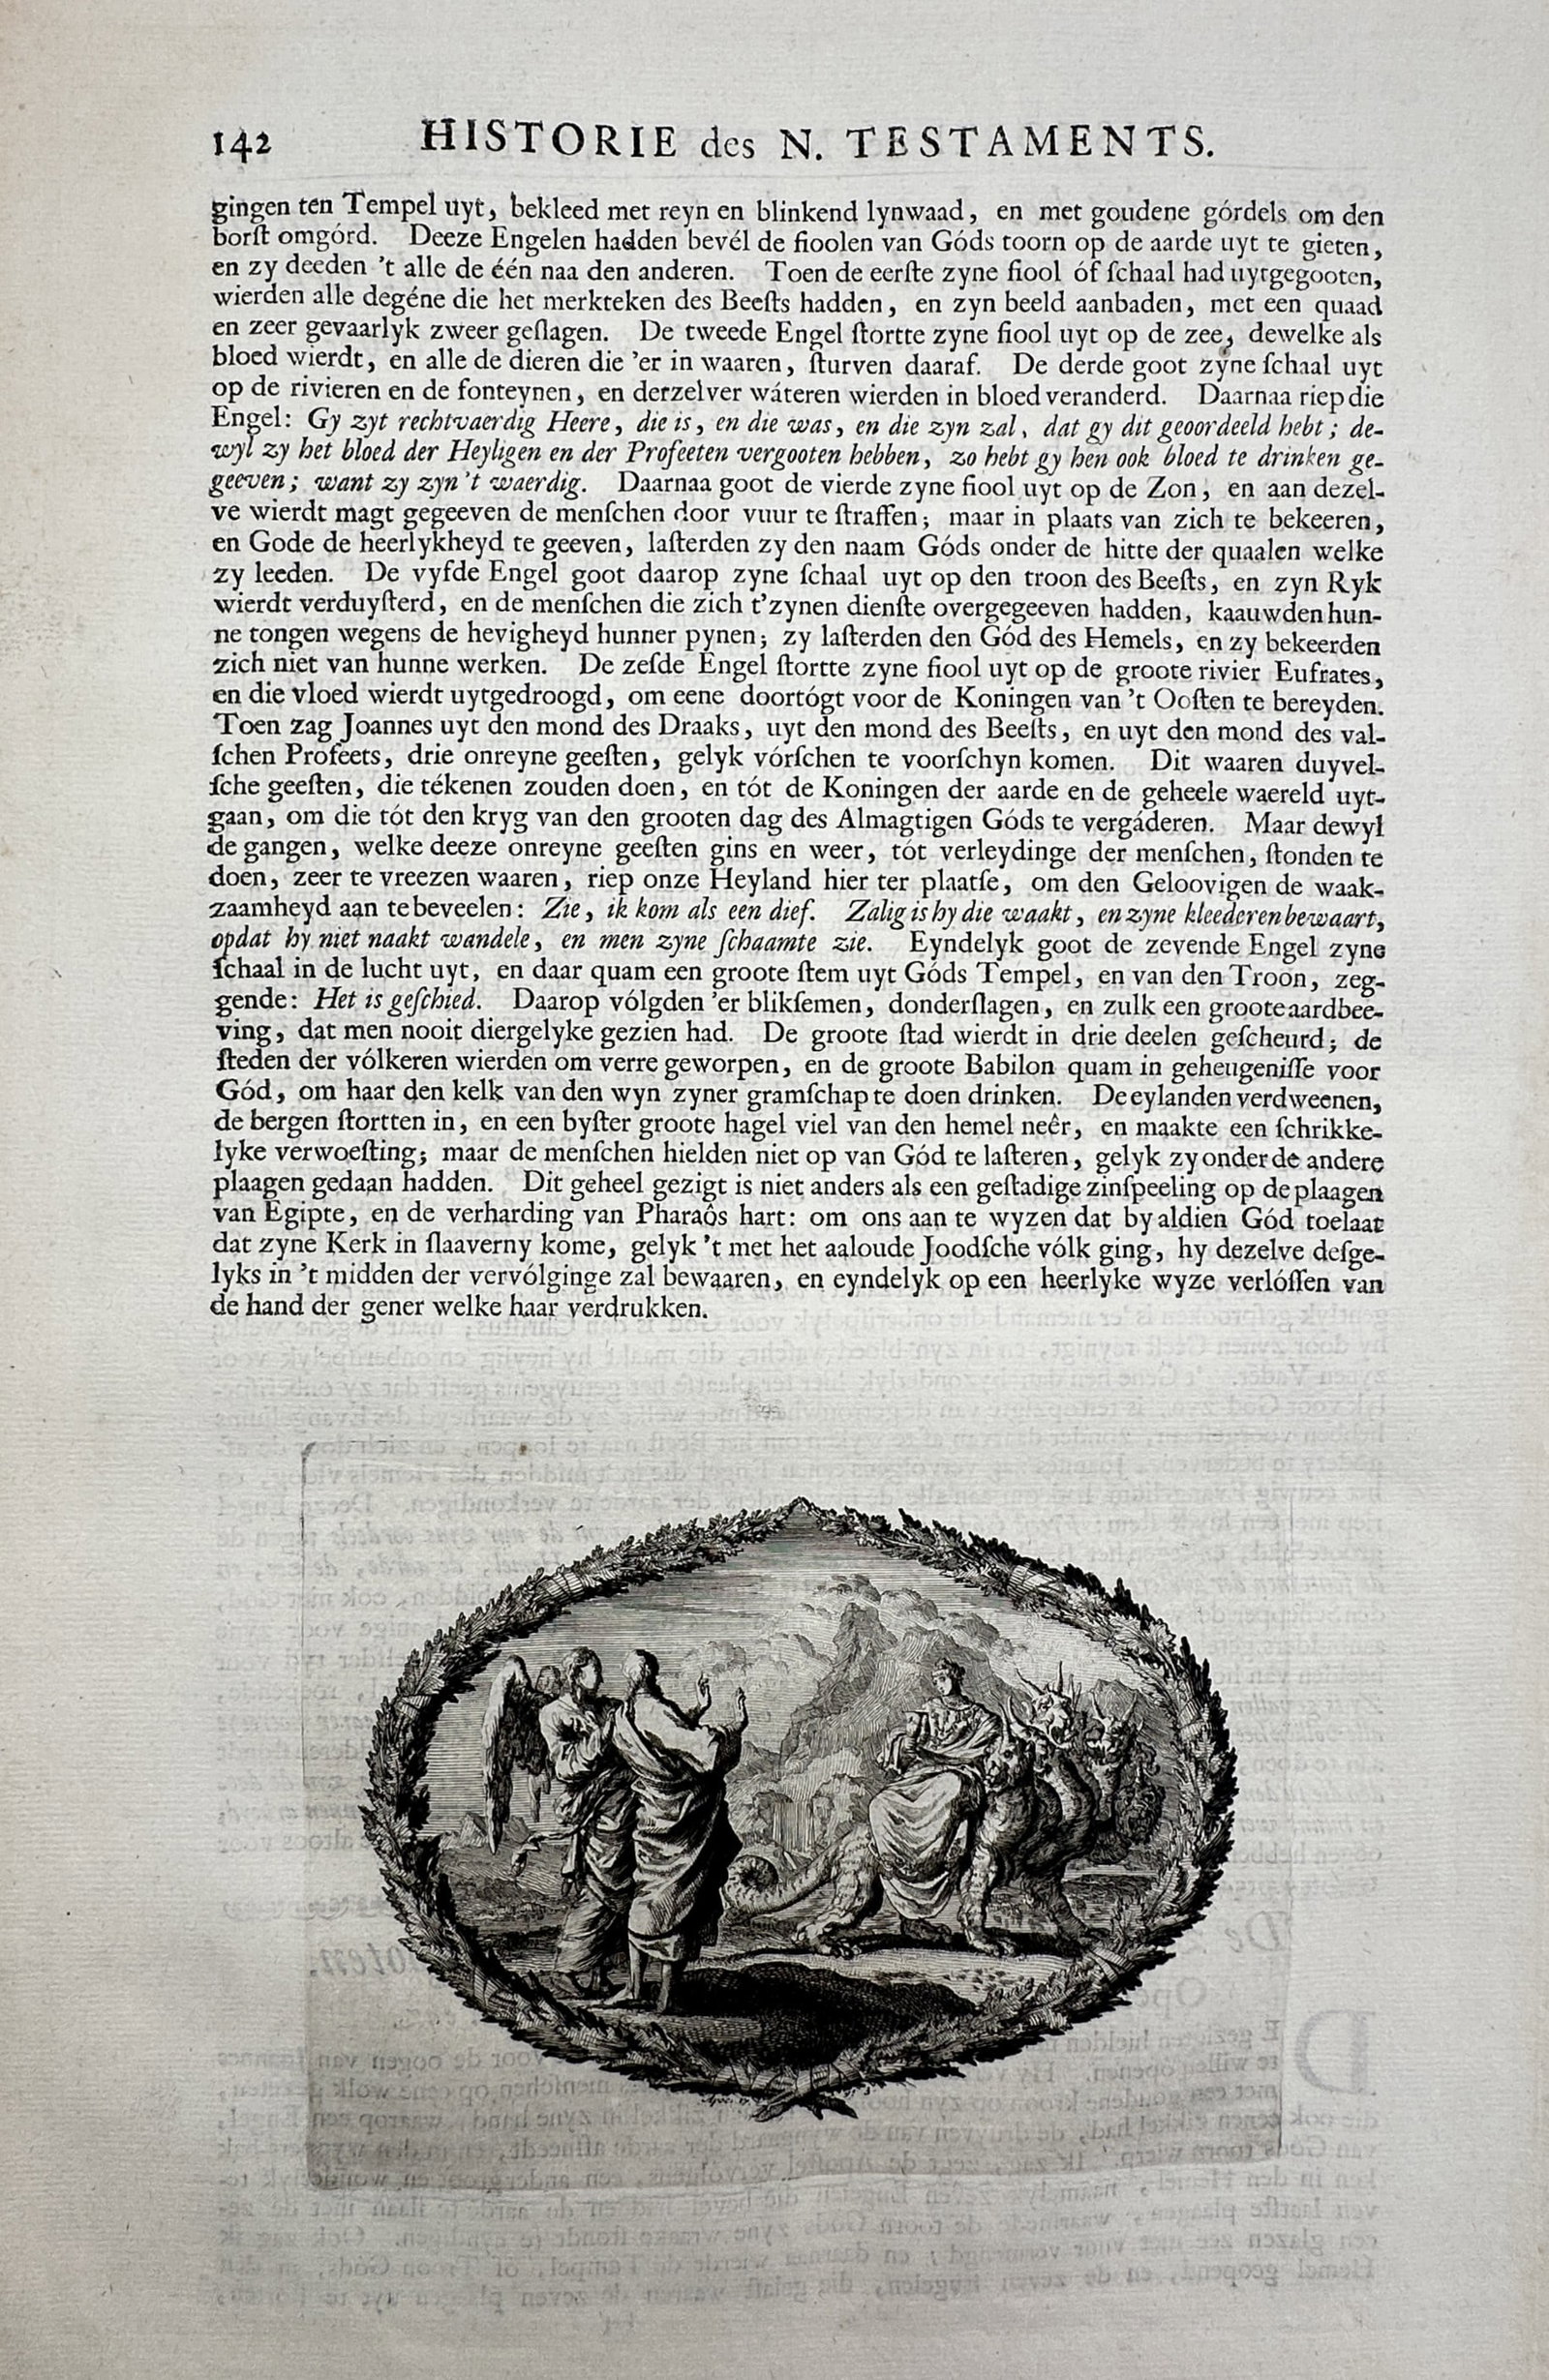 142 HISTORIE des N. TESTAMENTS.
gingen ten Tempel uyt, bekleed met reyn en blinkend lynwaad, en met goudene górdels om den
borſt omgórd. Deeze Engelen hadden bevél de fioolen van Góds toorn op de aarde uyt te gieten,
en zy deeden 't alle de één naa den anderen. Toen de eerſte zyne fiool óf ſchaal had uytgegooten,
wierden alle degéne die het merkteken des Beeſts hadden, en zyn beeld aanbaden, met een quaad
en zeer gevaarlyk zweer geſlagen. De tweede Engel ſtortte zyne fiool uyt op de zee, dewelke als
bloed wierdt, en alle de dieren die 'er in waaren, ſturven daaraf. De derde goot zyne ſchaal uyt
op de rivieren en de fonteynen, en derzelver wáteren wierden in bloed veranderd. Daarnaa riep die
Engel: Gy zyt rechtvaerdig Heere, die is, en die was, en die zyn zal, dat gy dit geoordeeld hebt; de-
wyl zy het bloed der Heyligen en der Profeeten vergooten hebben, zo hebt gy hen ook bloed te drinken ge-
geeven; want zy zyn 't waerdig. Daarnaa goot de vierde zyne fiool uyt op de Zon, en aan dezel-
ve wierdt magt gegeeven de menſchen door vuur te ſtraffen; maar in plaats van zich te bekeeren,
en Gode de heerlykheyd te geeven, laſterden zy den naam Góds onder de hitte der quaalen welke
zy leeden. De vyfde Engel goot daarop zyne ſchaal uyt op den troon des Beeſts, en zyn Ryk
wierdt verduyſterd, en de menſchen die zich t'zynen dienſte overgegeeven hadden, kaauwden hun-
ne tongen wegens de hevigheyd hunner pynen; zy laſterden den Gód des Hemels, en zy bekeerden
zich niet van hunne werken. De zeſde Engel ſtortte zyne fiool uyt op de groote rivier Eufrates,
en die vloed wierdt uytgedroogd, om eene doortógt voor de Koningen van 't Ooſten te bereyden.
Toen zag Joannes uyt den mond des Draaks, uyt den mond des Beeſts, en uyt den mond des val-
ſchen Profeets, drie onreyne geeſten, gelyk vórſchen te voorſchyn komen. Dit waaren duyvel-
ſche geeſten, die tékenen zouden doen, en tót de Koningen der aarde en de geheele waereld uyt-
gaan, om die tót den kryg van den grooten dag des Almagtigen Góds te vergáderen. Maar dewyl
de gangen, welke deeze onreyne geeſten gins en weer, tót verleydinge der menſchen, ſtonden te
doen, zeer te vreezen waaren, riep onze Heyland hier ter plaatſe, om den Geloovigen de waak-
zaamheyd aan te beveelen: Zie, ik kom als een dief. Zalig is hy die waakt, en zyne kleederen bewaart,
opdat hy niet naakt wandele, en men zyne ſchaamte zie. Eyndelyk goot de zevende Engel zyne
ſchaal in de lucht uyt, en daar quam een groote ſtem uyt Góds Tempel, en van den Troon, zeg-
gende: Het is geſchied. Daarop vólgden 'er blikſemen, donderſlagen, en zulk een groote aardbee-
ving, dat men nooit diergelyke gezien had. De groote ſtad wierdt in drie deelen geſcheurd; de
ſteden der vólkeren wierden om verre geworpen, en de groote Babilon quam in geheugeniſſe voor
Gód, om haar den kelk van den wyn zyner gramſchap te doen drinken. De eylanden verdweenen,
de bergen ſtortten in, en een byſter groote hagel viel van den hemel neêr, en maakte een ſchrikke-
lyke verwoeſting; maar de menſchen hielden niet op van Gód te laſteren, gelyk zy onder de andere
plaagen gedaan hadden. Dit geheel gezigt is niet anders als een geſtadige zinſpeeling op de plaagen
van Egipte, en de verharding van Pharaôs hart: om ons aan te wyzen dat by aldien Gód toelaat
dat zyne Kerk in ſlaaverny kome, gelyk 't met het aaloude Joodſche vólk ging, hy dezelve deſge-
lyks in 't midden der vervólginge zal bewaaren, en eyndelyk op een heerlyke wyze verlóſſen van
de hand der gener welke haar verdrukken.